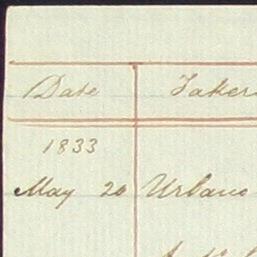 Date Taken
1833
May 20 Urbano